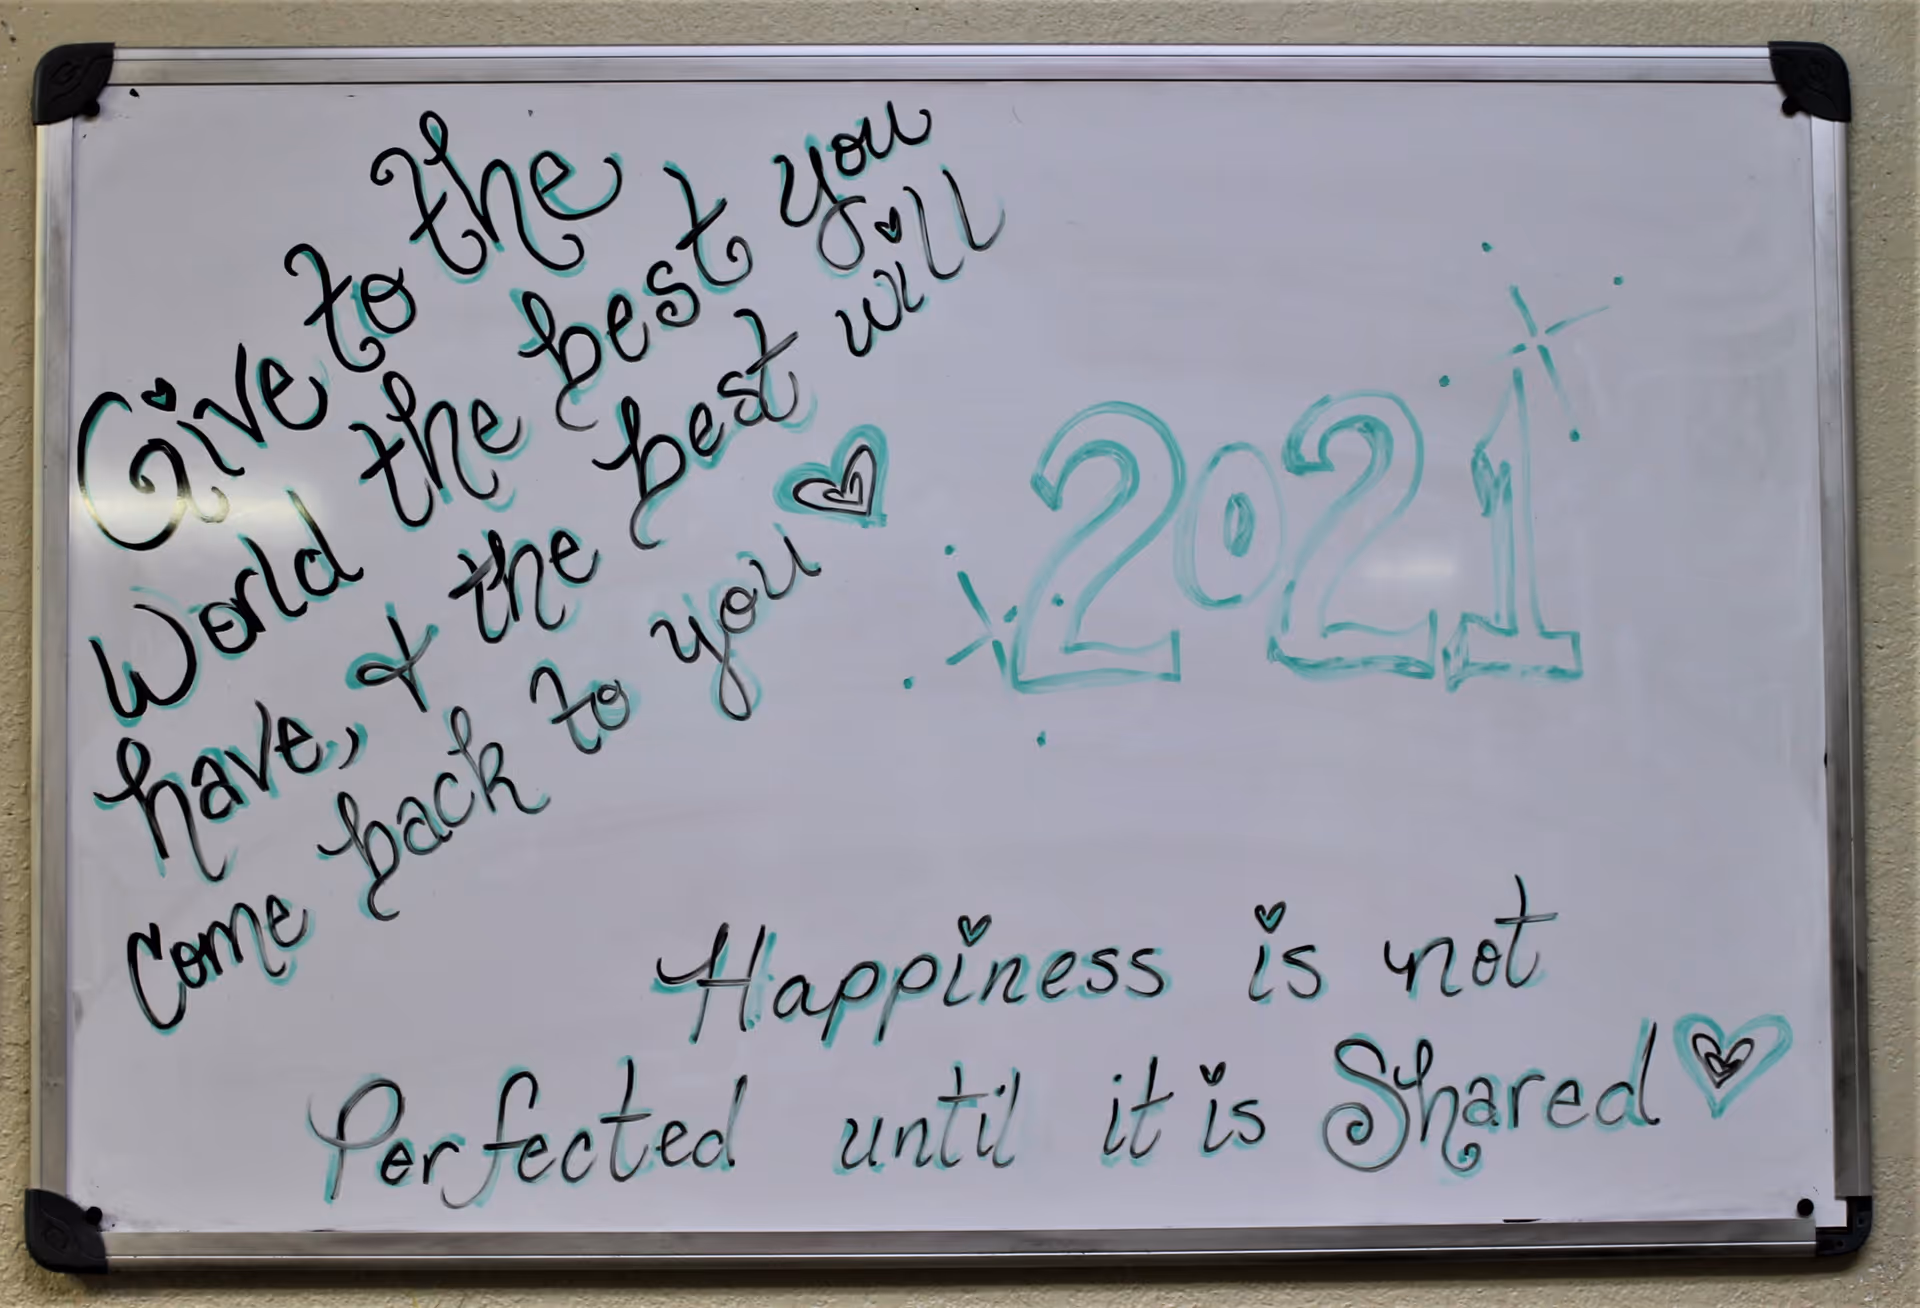 Give to the
World the best you
have, & the best will
Come back to you
2021
Happiness is not
Perfected until it is Shared